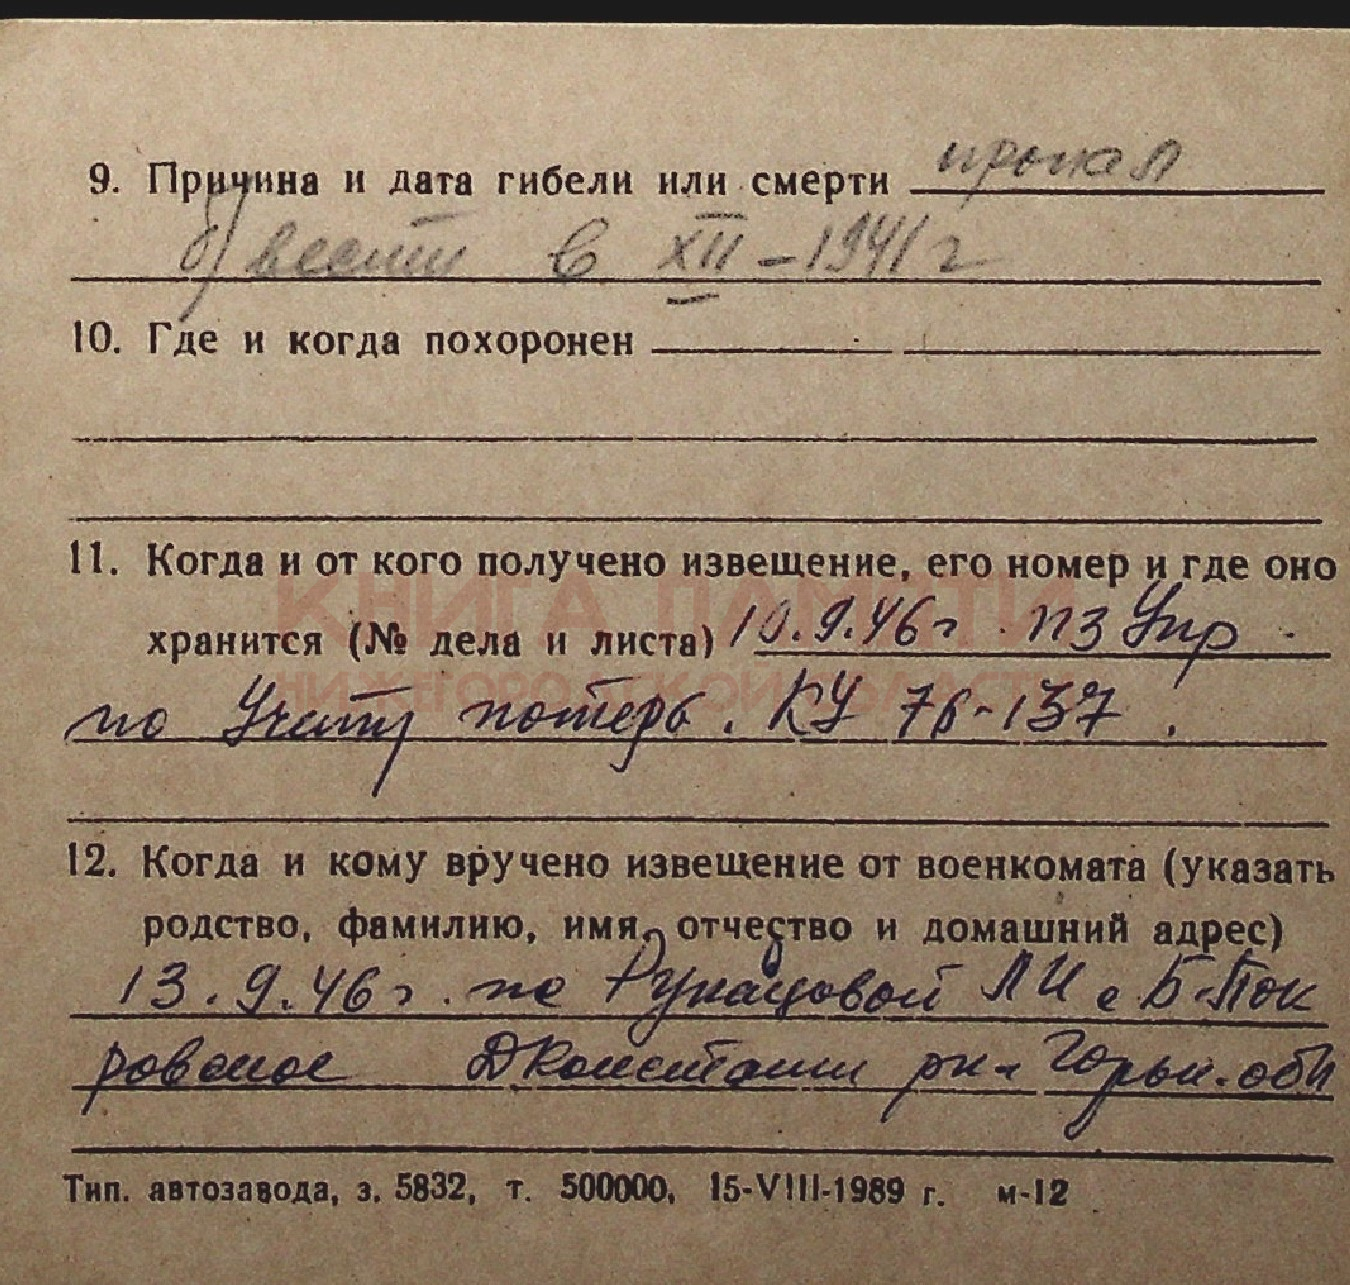 9. Причина и дата гибели или смерти пропал
б/вести в XII-1941г
10. Где и когда похоронен
КНИГА ПАМЯТИ
НИЖЕГОРОДСКОЙ ОБЛАСТИ
11. Когда и от кого получено извещение, его номер и где оно
хранится (№ дела и листа) 10.9.46г. Упр
по Учету потерь. КУ 76-137.
12. Когда и кому вручено извещение от военкомата (указать
родство, фамилию, имя, отчество и домашний адрес)
13.9.46г. ЛИ с Б-Пок
ровское ДКонстатин рн- Горьк. обл
Тип. автозавода, з. 5832, т. 500000, 15-VIII-1989 г. м-12